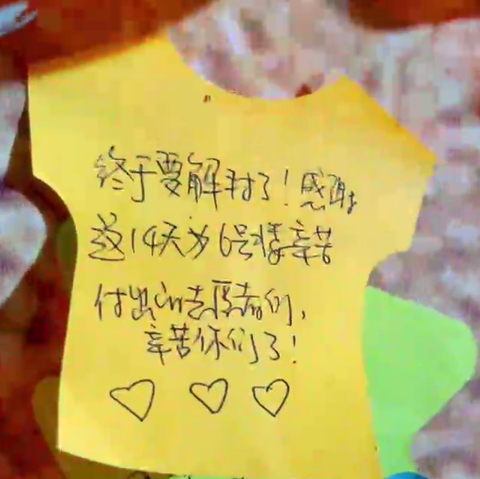 终于要解封了！感谢
这14天为6号楼辛苦
付出的志愿者们，
辛苦你们了！